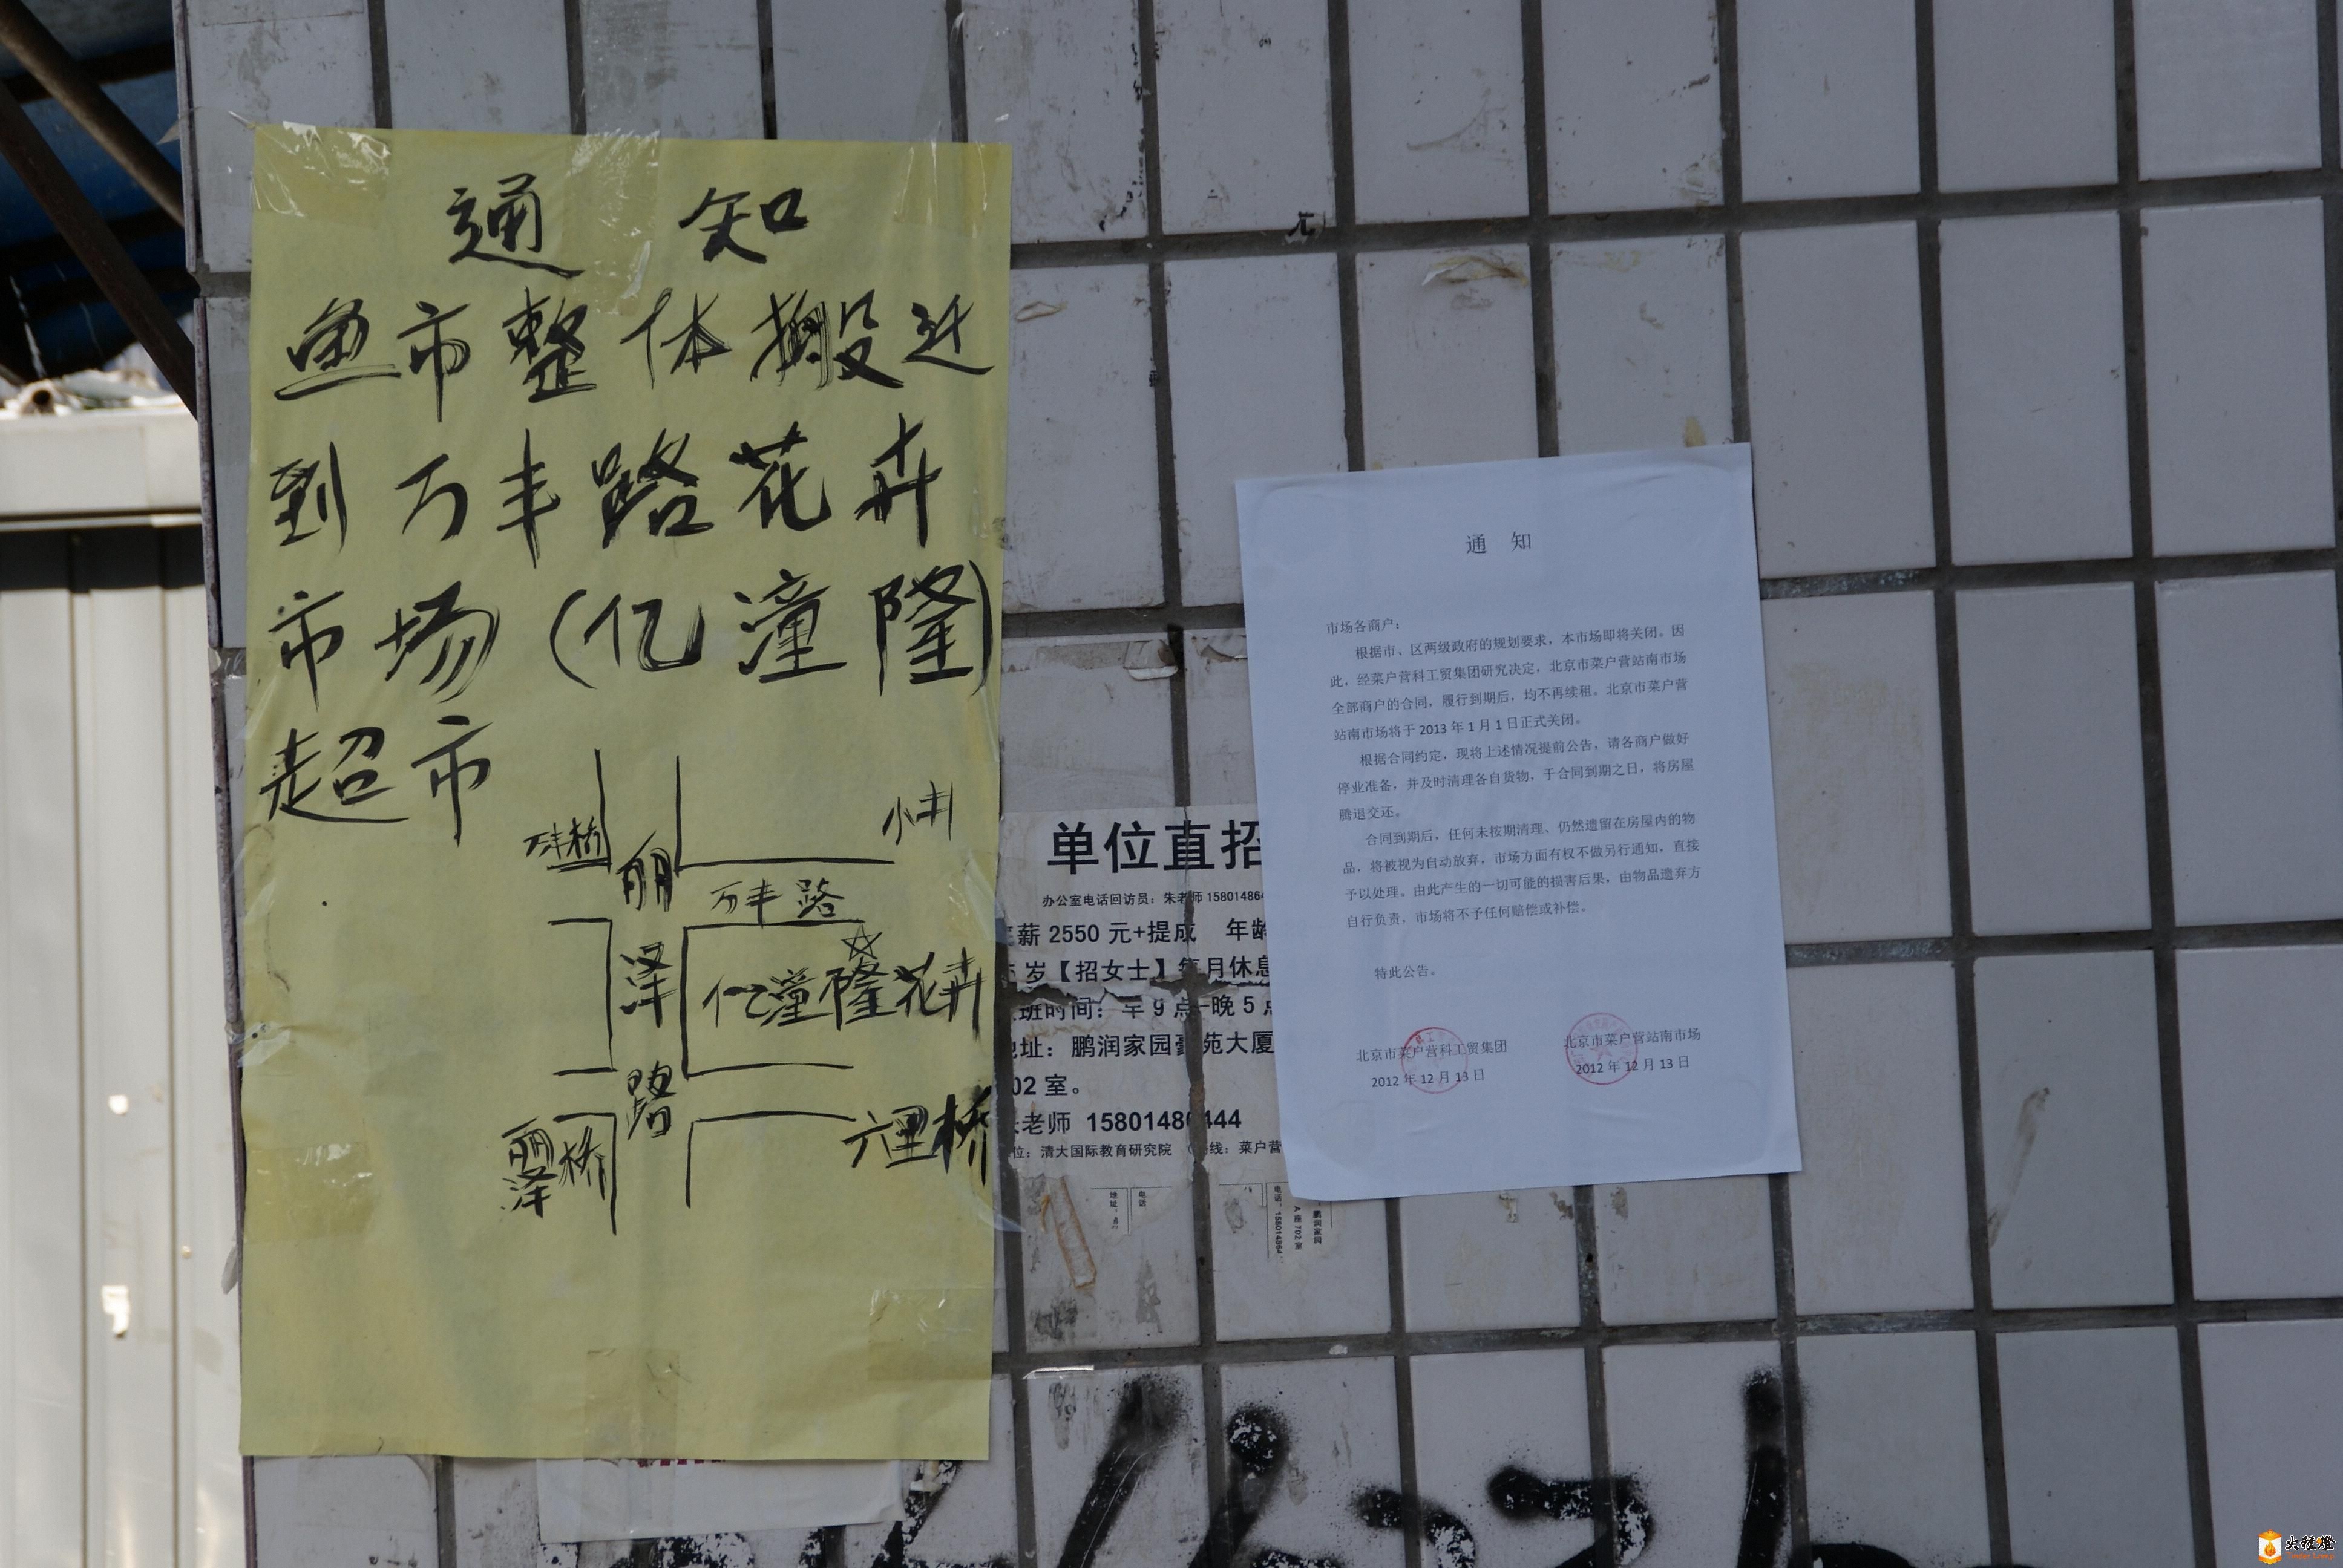 通知
鱼市整体搬迁
到万丰路花卉
市场(亿潼隆)
超市
万丰桥
小井
丽泽路
万丰路
亿潼隆花卉
丽泽桥
六里桥
单位直招
办公室电话回访员：朱老师 158014864
薪 2550 元+提成 年龄
岁【招女士】每月休息
班时间：早 9 点-晚 5 点
地址：鹏润家园豪苑大厦
02 室。
老师 15801480444
位：清大国际教育研究院
线：菜户营
通 知
市场各商户：
根据市、区两级政府的规划要求，本市场即将关闭。因
此，经菜户营科工贸集团研究决定，北京市菜户营站南市场
全部商户的合同，履行到期后，均不再续租。北京市菜户营
站南市场将于 2013 年 1 月 1 日正式关闭。
根据合同约定，现将上述情况提前公告，请各商户做好
停业准备，并及时清理各自货物，于合同到期之日，将房屋
腾退交还。
合同到期后，任何未按期清理、仍然遗留在房屋内的物
品，将被视为自动放弃，市场方面有权不做另行通知，直接
予以处理。由此产生的一切可能的损害后果，由物品遗弃方
自行负责，市场将不予任何赔偿或补偿。
特此公告。
北京市菜户营科工贸集团
2012 年 12 月 13 日
北京市菜户营站南市场
2012 年 12 月 13 日
火种灯